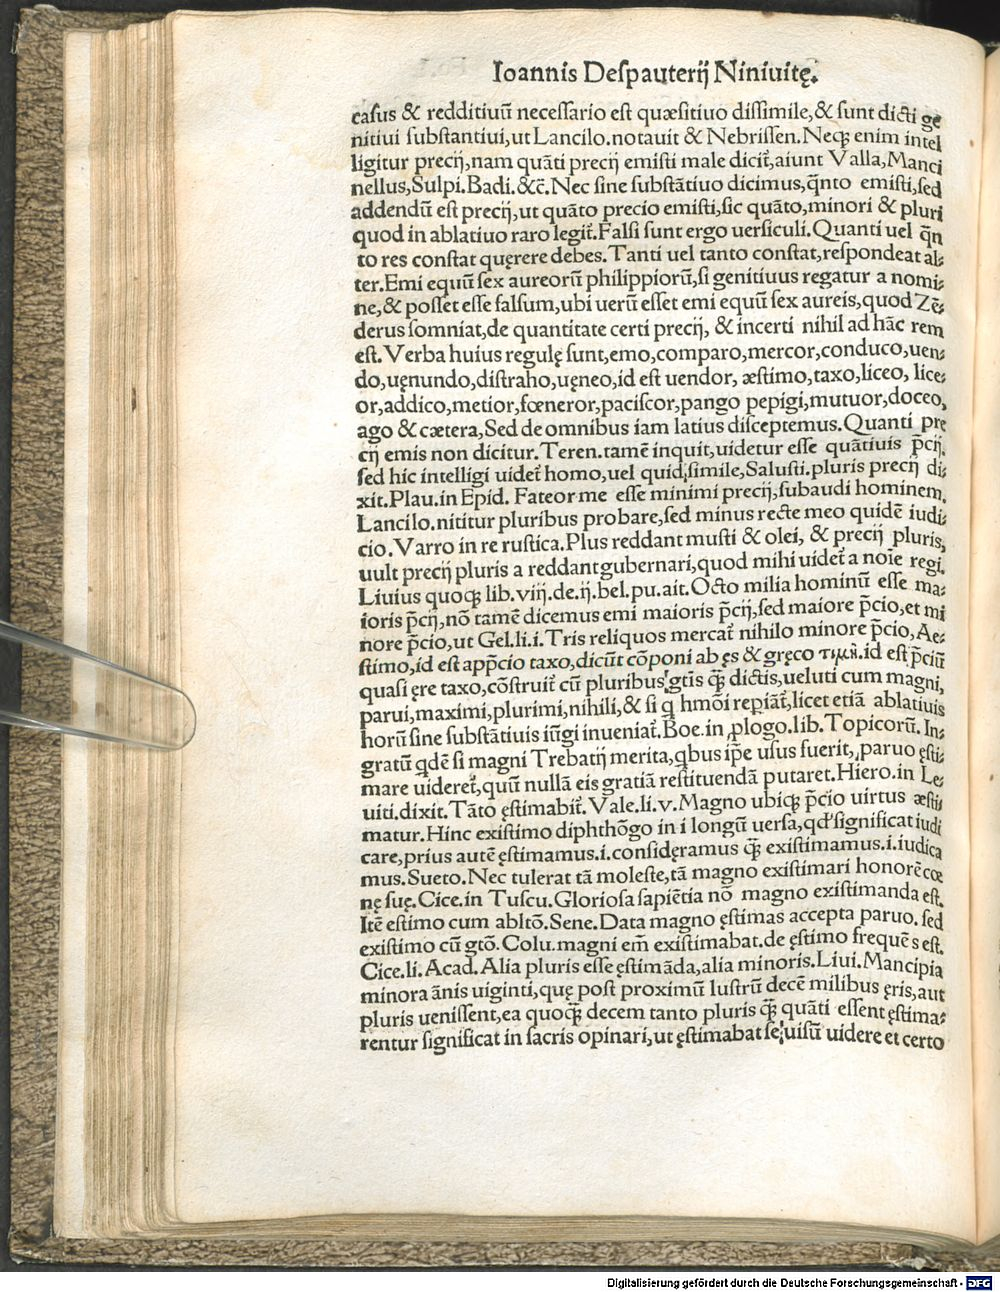 Ioannis Deſpauterij Niniuitę.
caſus & redditiuū neceſſario eſt quæſitiuo diſſimile,& ſunt dicti ge
nitiui ſubſtantiui,ut Lancilo.notauit & Nebriſſen.Neqꝫ enim intel
ligitur precij,nam quāti precij emiſti male dicit᷑,aiunt Valla,Manci
nellus,Sulpi.Badi.&c̄.Nec ſine ſubſtātiuo dicimus,q̄nto emiſti,ſed
addendū eſt precij,ut quāto precio emiſti,ſic quāto,minori & pluri
quod in ablatiuo raro legit᷑.Falſi ſunt ergo uerſiculi.Quanti uel q̄n
to res conſtat quęrere debes.Tanti uel tanto conſtat,reſpondeat al⸗
ter.Emi equū ſex aureorū philippiorū,ſi genitiuus regatur a nomi⸗
ne,& poſſet eſſe falſum,ubi uerū eſſet emi equū ſex aureis,quod Zē⸗
derus ſomniat,de quantitate certi precij, & incerti nihil ad hāc rem
eſt.Verba huius regulę ſunt,emo,comparo,mercor,conduco,uen⸗
do,uęnundo,diſtraho,uęneo,id eſt uendor, æſtimo,taxo,liceo, lice⸗
or,addico,metior,fœneror,paciſcor,pango pepigi,mutuor,doceo,
ago & cætera,Sed de omnibus iam latius diſceptemus.Quanti pre
cij emis non dicitur.Teren.tamē inquit,uidetur eſſe quātiuis p̄cij.
ſed hic intelligi uidet᷑ homo,uel quid ſimile,Saluſti.pluris precij di⸗
xit.Plau.in Epid. Fateor me eſſe minimi precij,ſubaudi hominem.
Lancilo.nititur pluribus probare,ſed minus recte meo quidē iudi⸗
cio.Varro in re ruſtica.Plus reddant muſti & olei, & precij pluris,
uult precij pluris a reddant gubernari,quod mihi uidet᷑ a noīe regi.
Liuius quoqꝫ lib.viij.de.ij.bel.pu.ait.Octo milia hominū eſſe ma⸗
ioris p̄cij,nō tamē dicemus emi maioris p̄cij,ſed maiore p̄cio,et mi
nore p̄cio,ut Gel.li.i.Tris reliquos mercat᷑ nihilo minore p̄cio,Ae⸗
ſtimo,id eſt app̄cio taxo,dicūt cōponi ab ęs & gręco τιμῶ.id eſt p̄ciū
quaſi ęre taxo,cōſtruit᷑ cū pluribus gtīs qꝫ̄ dictis,ueluti cum magni,
parui,maximi,plurimi,nihili,& ſi q̄ hmōi repiāt᷑,licet etiā ablatiuis
horū ſine ſubſtātiuis iūgi inueniat᷑.Boe.in ꝓlogo.lib.Topicorū.In⸗
gratū qdē ſi magni Trebatij merita,qbus ip̄e uſus fuerit, paruo ęſti⸗
mare uideret᷑,quū nullā eis gratiā reſtituendā putaret.Hiero.in Le⸗
uiti.dixit.Tāto ęſtimabit᷑.Vale.li.v.Magno ubiqꝫ p̄cio uirtus æſti⸗
matur.Hinc exiſtimo diphthōgo in i longū uerſa,qd' ſignificat iudi
care,prius autē ęſtimamus.i.conſidęramus qꝫ̄ exiſtimamus.i.iudica
mus.Sueto.Nec tulerat tā moleſte,tā magno exiſtimari honorē cœ
nę ſuę.Cice.in Tuſcu.Glorioſa ſapiētia nō magno exiſtimanda eſt.
Itē eſtimo cum abltō.Sene.Data magno ęſtimas accepta paruo. ſed
exiſtimo cū gtō.Colu.magni em̄ exiſtimabat.de ęſtimo frequēs eſt.
Cice.li. Acad. Alia pluris eſſe ęſtimāda,alia minoris.Liui.Mancipia
minora ānis uiginti,quę poſt proximū luſtrū decē milibus ęris,aut
pluris ueniſſent,ea quoqꝫ̄ decem tanto pluris qꝫ̄ quāti eſſent ęſtima⸗
rentur ſignificat in ſacris opinari,ut ęſtimabat ſe uiſū uidere et certo
Digitalisierung gefördert durch die Deutsche Forschungsgemeinschaft - DFG